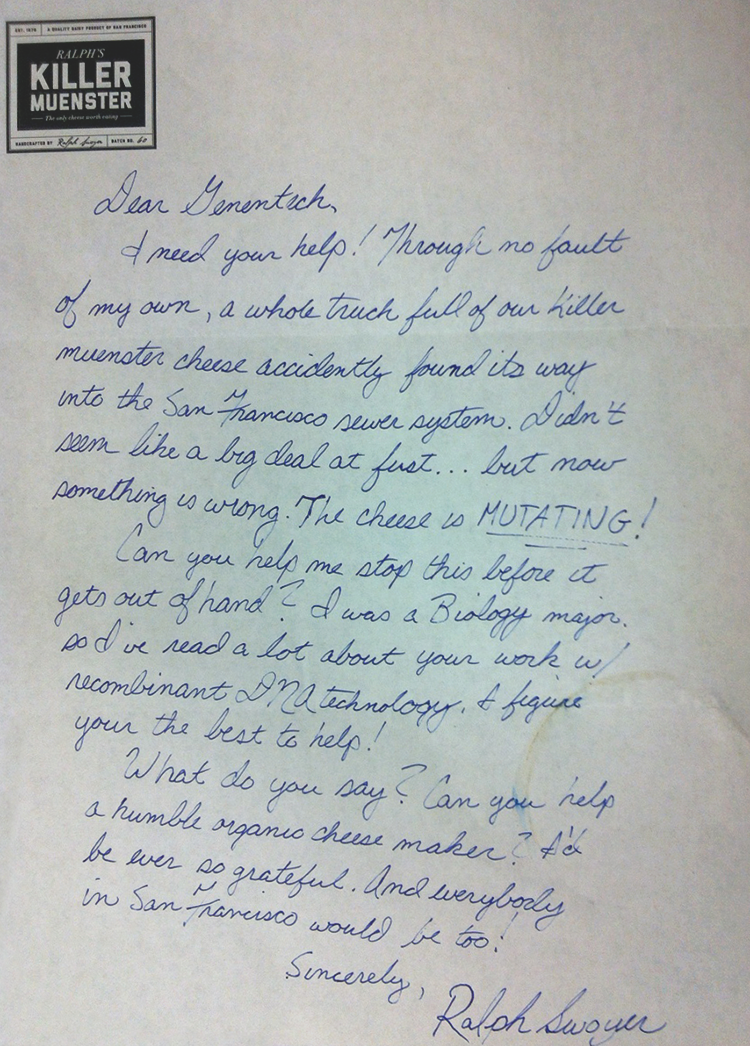 EST. 1978 A QUALITY DAIRY PRODUCT OF SAN FRANCISCO
RALPH'S
KILLER
MUENSTER
The only cheese worth eating
HANDCRAFTED BY Ralph Swoyer BATCH NO.
Dear Genentech,
I need your help! Through no fault
of my own, a whole truck full of our killer
muenster cheese accidently found its way
into the San Francisco sewer system. Didn't
seem like a big deal at first... but now
something is wrong. The cheese is MUTATING!
Can you help me stop this before it
gets out of hand? I was a Biology major.
so I've read a lot about your work w/
recombinant DNA technology. I figure
your the best to help!
What do you say? Can you help
a humble organic cheese maker? I'd
be ever so grateful. And everybody
in San Francisco would be too!
Sincerely,
Ralph Swoyer